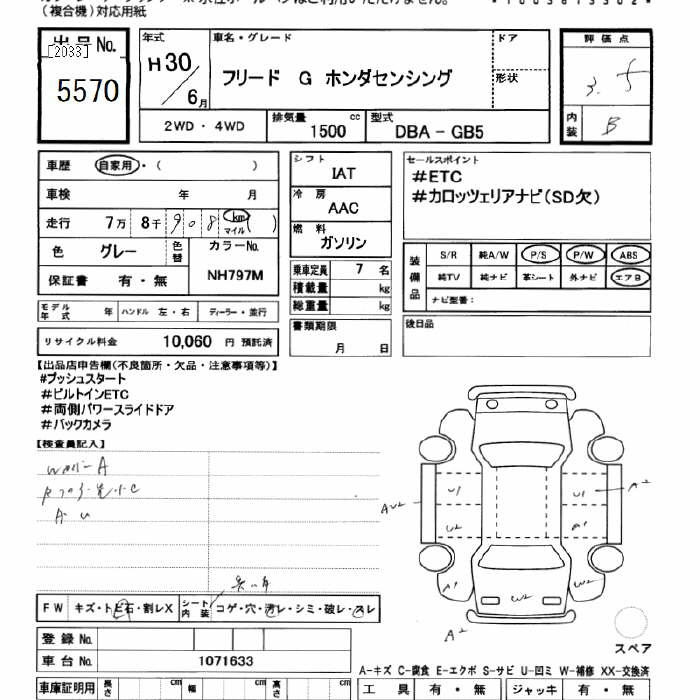 (複合機)対応用紙
出品No.
[2033]
5570
年式
H30
6月
車名・グレード
フリード G ホンダセンシング
ドア
形状
評価点
3.5
内装
B
2WD・4WD
排気量
1500 cc
型式
DBA - GB5
車歴 自家用・( )
車検 年 月
走行 7万 8千 908 km マイル ( )
色 グレー
色替
カラーNo.
NH797M
保証書 有・無
シフト
IAT
冷房
AAC
燃料
ガソリン
乗車定員 7 名
積載量 kg
総重量 kg
書類期限
月 日
セールスポイント
#ETC
#カロッツェリアナビ(SD欠)
装備品
S/R 純A/W P/S P/W ABS
純TV 純ナビ 革シート 外ナビ エアB
ナビ型番:
後日品
モデル年式 年 ハンドル 左・右 ディーラー・並行
リサイクル料金 10,060 円 預託済
【出品店申告欄(不良箇所・欠品・注意事項等)】
#プッシュスタート
#ビルトインETC
#両側パワースライドドア
#バックカメラ
【検査員記入】
A U
U1
U2
U1
A2
A1
A1
W2
W2
A2
FW キズ・トビ石・割レX
シート内装 コゲ・穴・汚レ・シミ・破レ・スレ
登録No.
車台No. 1071633
スペア
A-キズ C-腐食 E-エクボ S-サビ U-凹ミ W-補修 XX-交換済
車庫証明用 長さ cm 幅 cm 高さ cm
工具 有・無 ジャッキ 有・無